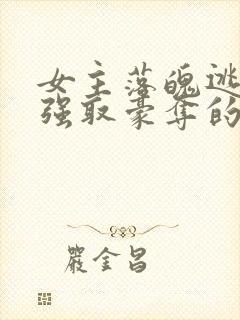 女主落魄逃
强取豪夺的
嚴金昌